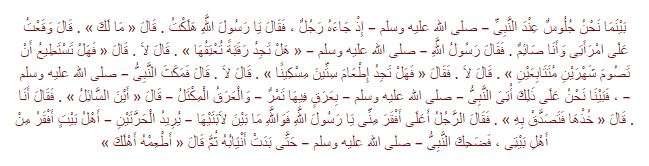 بَيْنَمَا نَحْنُ جُلُوسٌ عِنْدَ النَّبِيِّ – صلى الله عليه وسلم – إِذْ جَاءَهُ رَجُلٌ ، فَقَالَ يَا رَسُولَ اللَّهِ هَلَكْتُ . قَالَ « مَا لَكَ » . قَالَ وَقَعْتُ
عَلَى امْرَأَتِى وَأَنَا صَائِمٌ . فَقَالَ رَسُولُ اللَّهِ – صلى الله عليه وسلم – « هَلْ تَجِدُ رَقَبَةً تُعْتِقُهَا » . قَالَ لاَ . قَالَ « فَهَلْ تَسْتَطِيعُ أَنْ
تَصُومَ شَهْرَيْنِ مُتَتَابِعَيْنِ » . قَالَ لاَ . فَقَالَ « فَهَلْ تَجِدُ إِطْعَامَ سِتِّينَ مِسْكِينًا » . قَالَ لاَ . قَالَ فَمَكَثَ النَّبِىُّ – صلى الله عليه وسلم
– ، فَبَيْنَا نَحْنُ عَلَى ذَلِكَ أُتِىَ النَّبِىُّ – صلى الله عليه وسلم – بِعَرَقٍ فِيهَا تَمْرٌ – وَالْعَرَقُ الْمِكْتَلُ – قَالَ « أَيْنَ السَّائِلُ » . فَقَالَ أَنَا
. قَالَ « خُذْهَا فَتَصَدَّقْ بِهِ » . فَقَالَ الرَّجُلُ أَعَلَى أَفْقَرَ مِنِّى يَا رَسُولَ اللَّهِ فَوَاللَّهِ مَا بَيْنَ لاَبَتَيْهَا – يُرِيدُ الْحَرَّتَيْنِ – أَهْلُ بَيْتٍ أَفْقَرُ مِنْ
أَهْلِ بَيْتِى ، فَضَحِكَ النَّبِىُّ – صلى الله عليه وسلم – حَتَّى بَدَتْ أَنْيَابُهُ ثُمَّ قَالَ « أَطْعِمْهُ أَهْلَكَ »